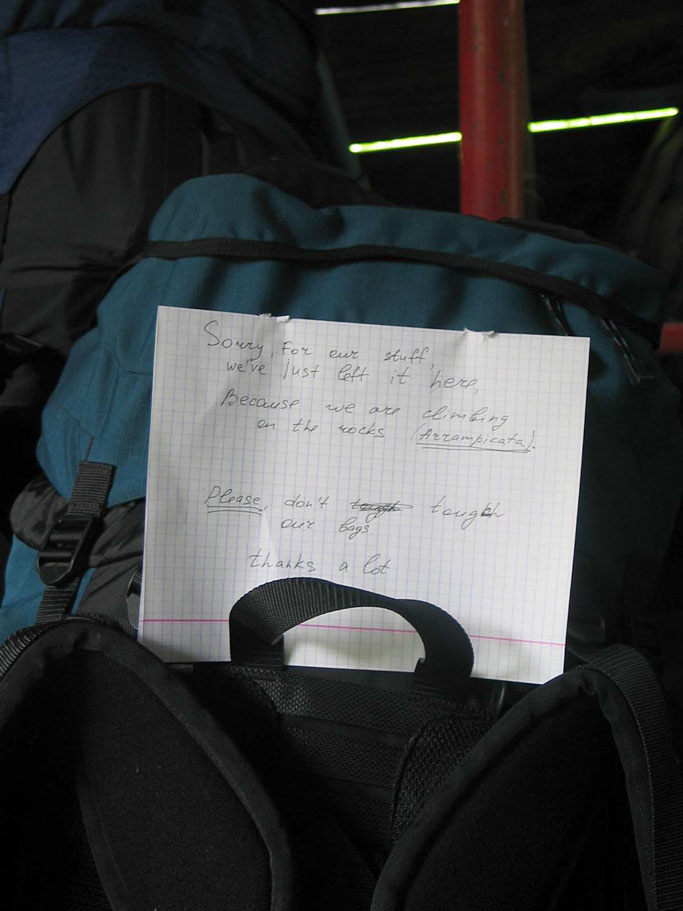 Sorry, For our stuff,
we've just left it here,
Because we are climbing
on the rocks (Arrampicata).
Please, don't tough
our bags
thanks a lot